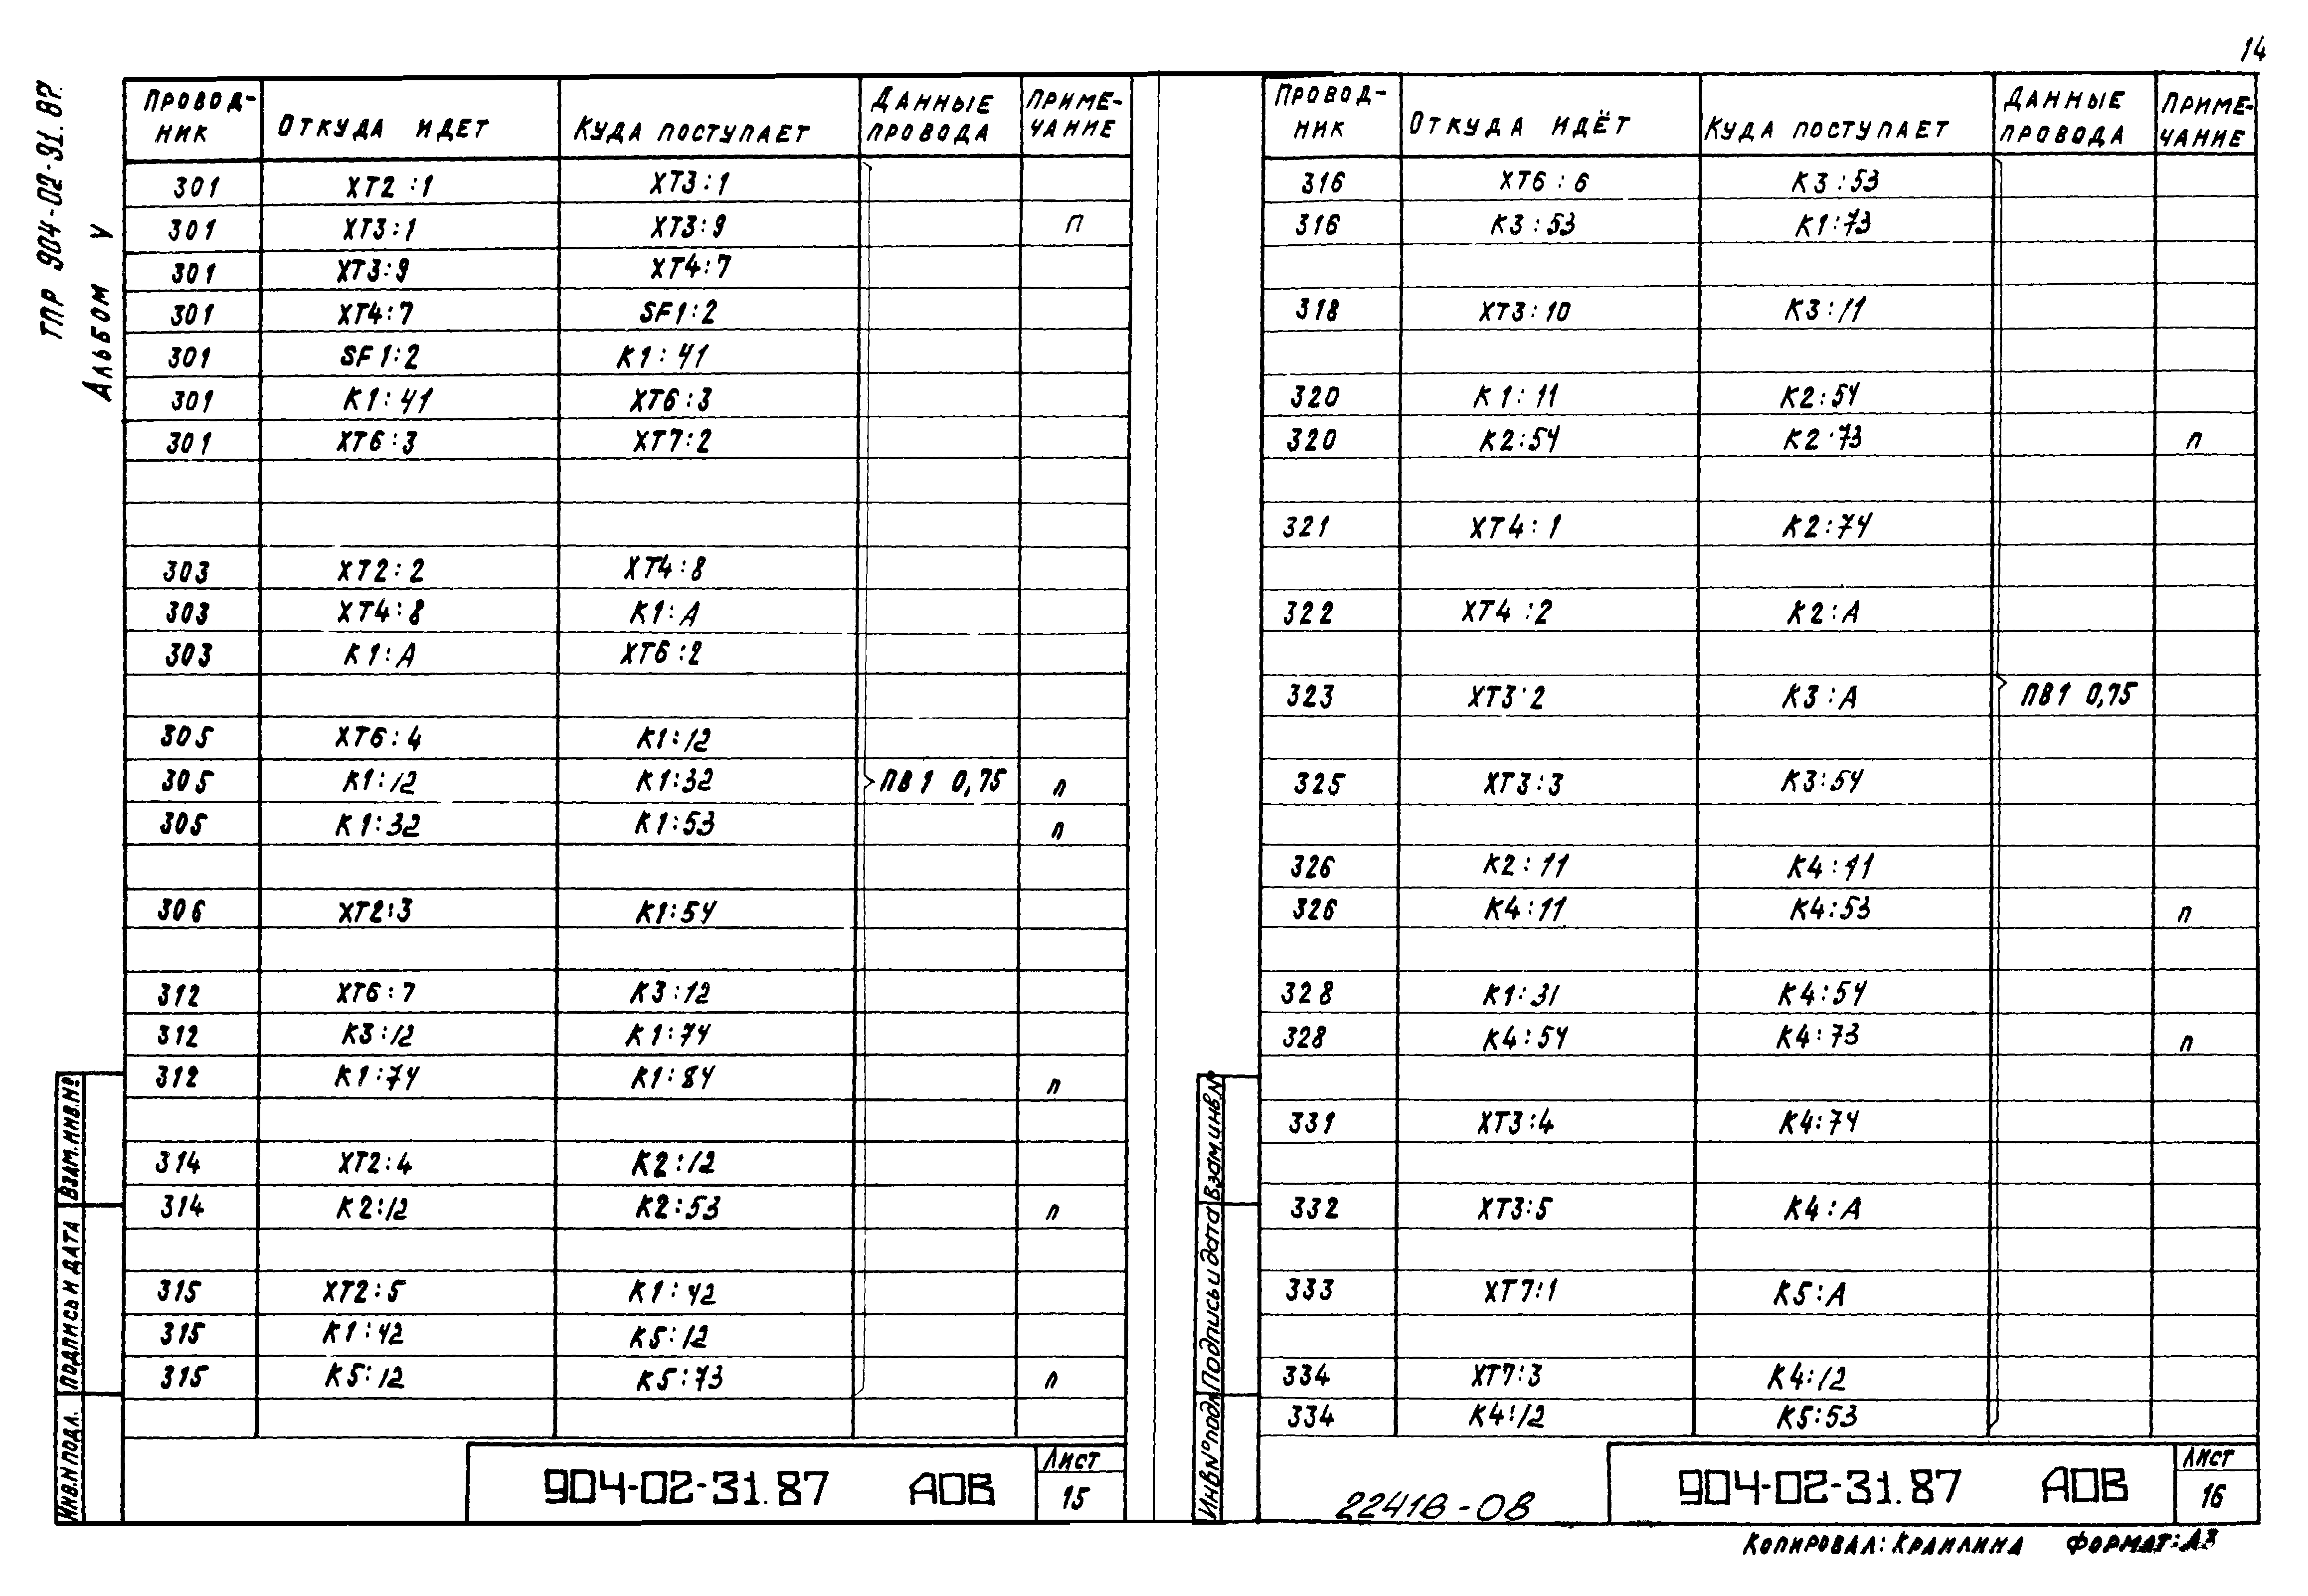 14
ТПР 904-02-31.87.
Альбом V
Провод-
ник
Откуда идет
Куда поступает
Данные
провода
Приме-
чание
301 XT2:1 XT3:1
301 XT3:1 XT3:9 П
301 XT3:9 XT4:7
301 XT4:7 SF1:2
301 SF1:2 K1:41
301 K1:41 XT6:3
301 XT6:3 XT7:2
303 XT2:2 XT4:8
303 XT4:8 K1:A
303 K1:A XT6:2
305 XT6:4 K1:12
305 K1:12 K1:32 ПВ1 0,75 п
305 K1:32 K1:53 п
306 XT2:3 K1:54
312 XT6:7 K3:12
312 K3:12 K1:74
312 K1:74 K1:84 п
314 XT2:4 K2:12
314 K2:12 K2:53 п
315 XT2:5 K1:42
315 K1:42 K5:12
315 K5:12 K5:73 п
Взам.инв.№
Подпись и дата
Инв.N подл.
904-02-31.87 АОВ
Лист
15
Провод-
ник
Откуда идёт
Куда поступает
Данные
провода
Приме-
чание
316 XT6:6 K3:53
316 K3:53 K1:73
318 XT3:10 K3:11
320 K1:11 K2:54
320 K2:54 K2:73 п
321 XT4:1 K2:74
322 XT4:2 K2:A
323 XT3:2 K3:A ПВ1 0,75
325 XT3:3 K3:54
326 K2:11 K4:11
326 K4:11 K4:53 п
328 K1:31 K4:54
328 K4:54 K4:73 п
331 XT3:4 K4:74
332 XT3:5 K4:A
333 XT7:1 K5:A
334 XT7:3 K4:12
334 K4:12 K5:53
Взам.инв.№
Подпись и дата
Инв.№ подл.
22418-08
904-02-31.87 АОВ
Лист
16
Копировал: Краилина Формат: А3